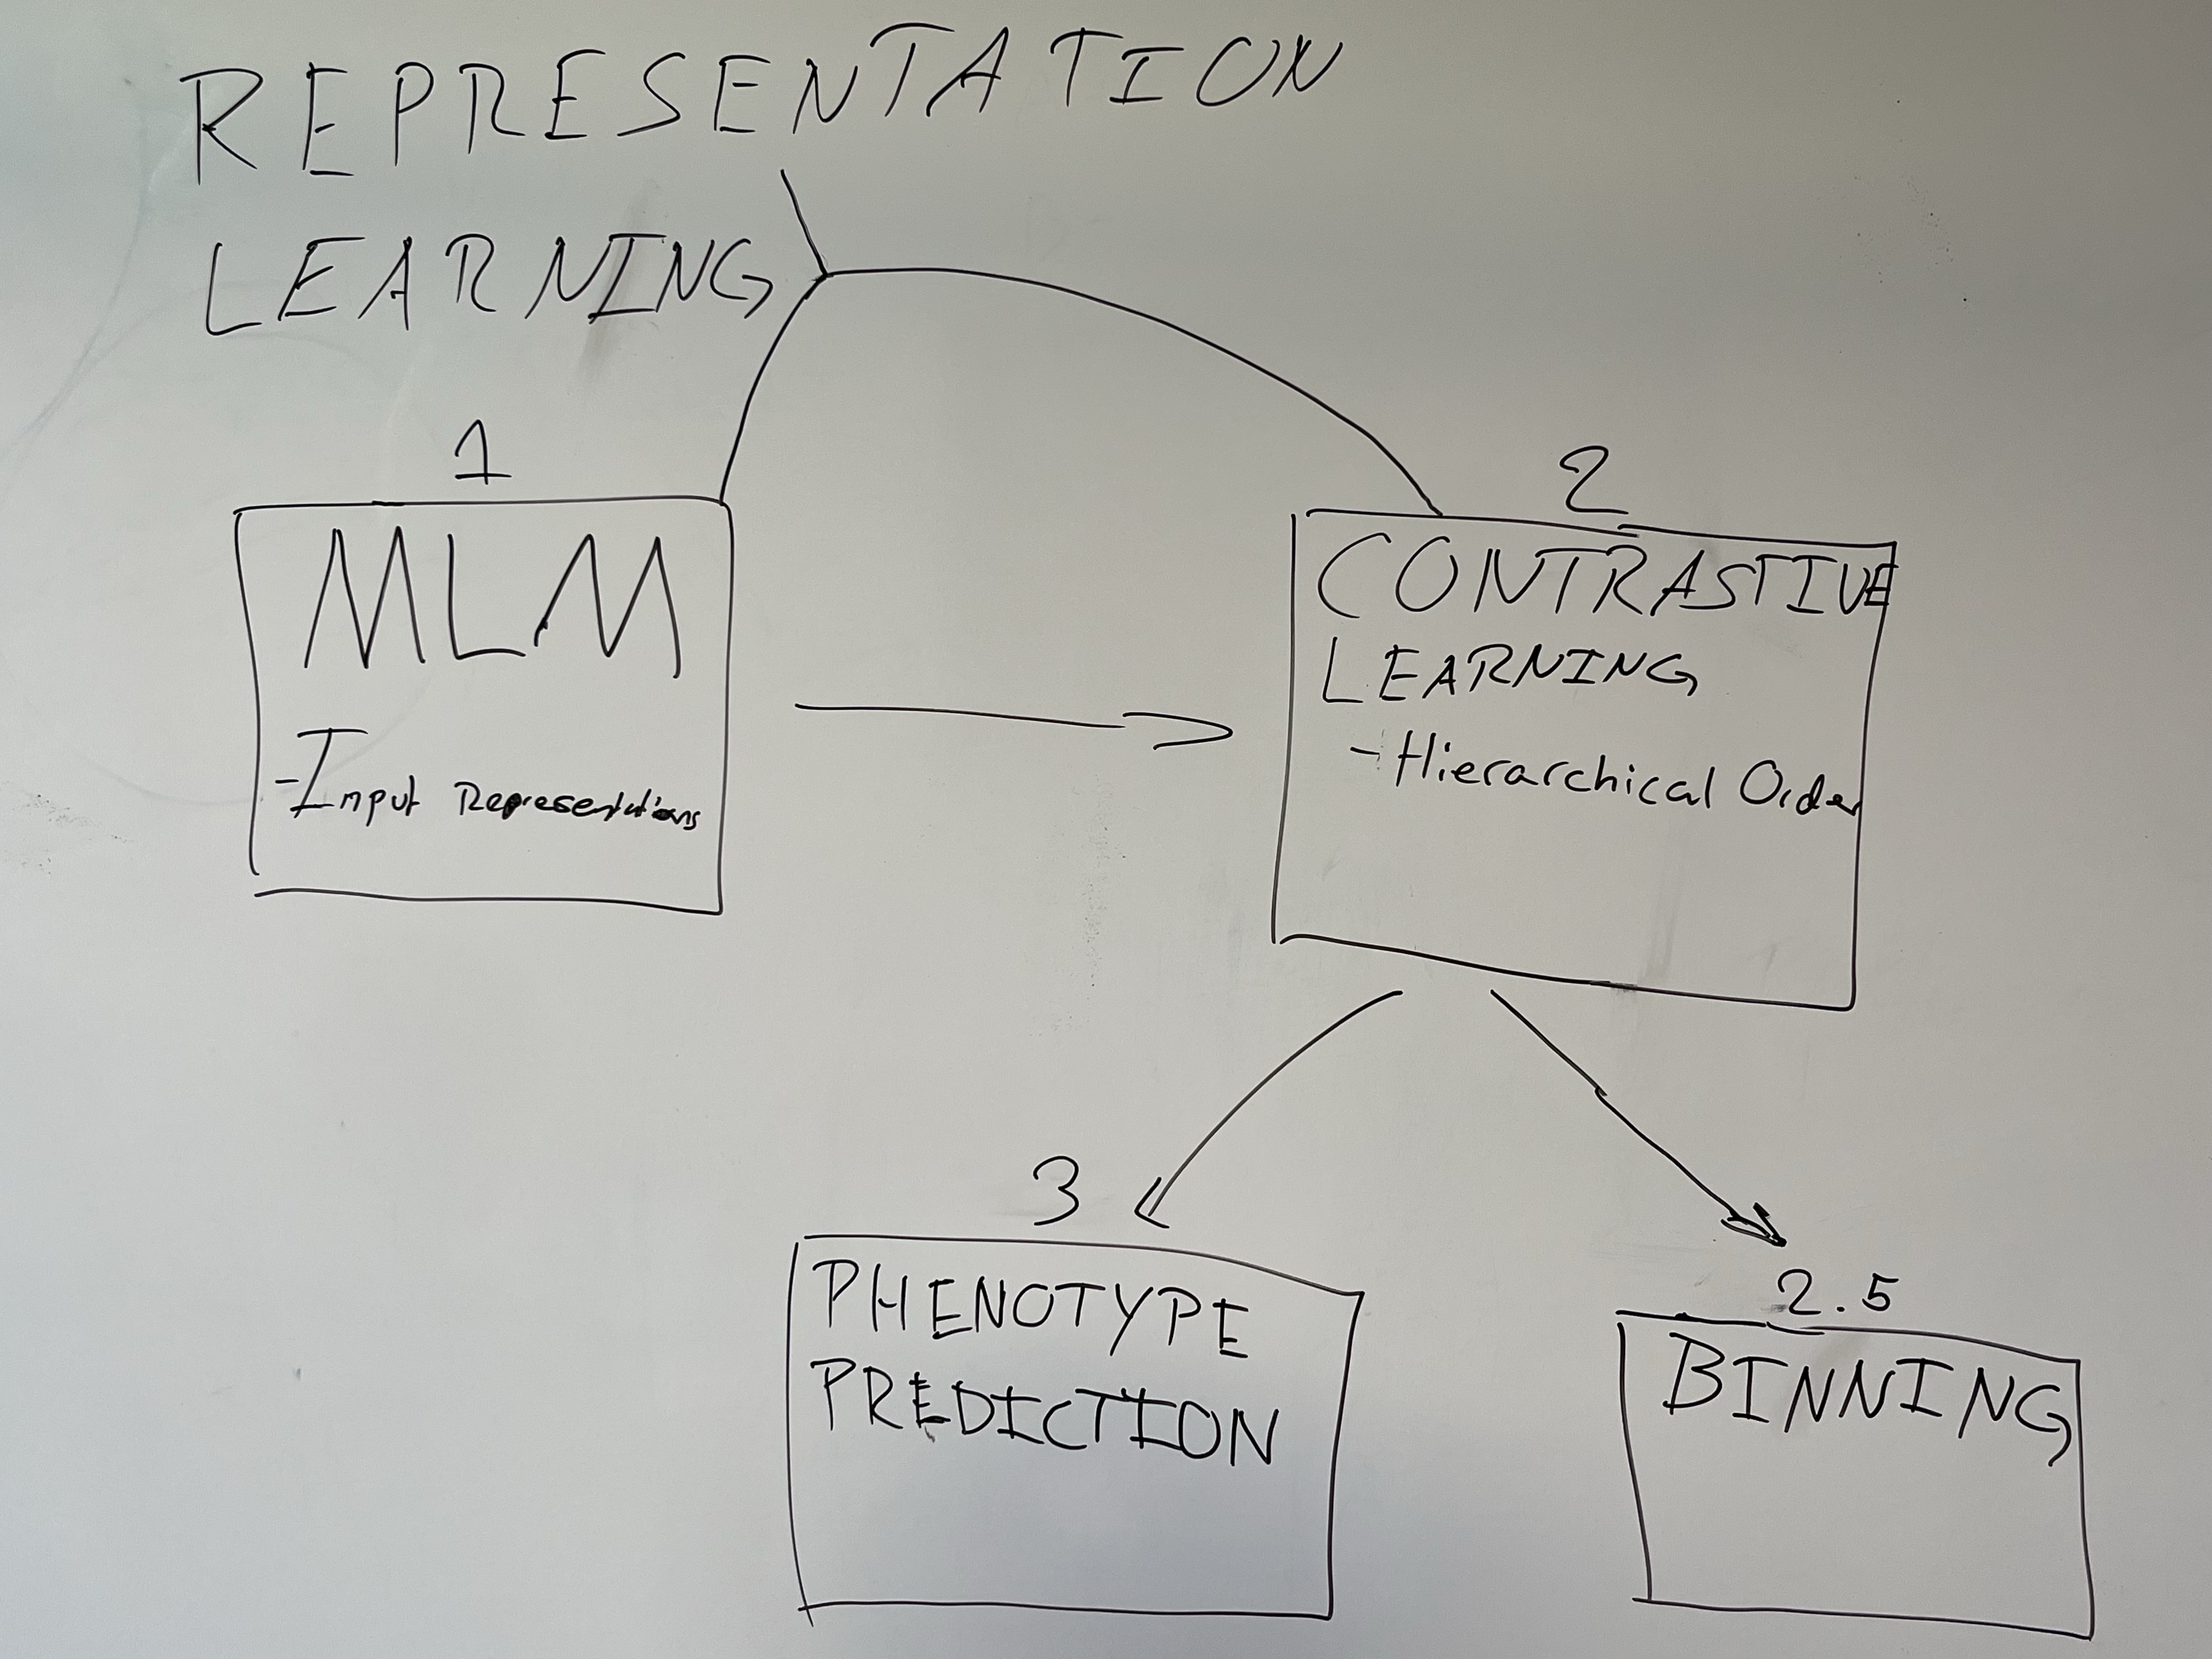 REPRESENTATION
LEARNING
1
MLM
-Input Representations
2
CONTRASTIVE
LEARNING
-Hierarchical Order
3
PHENOTYPE
PREDICTION
2.5
BINNING